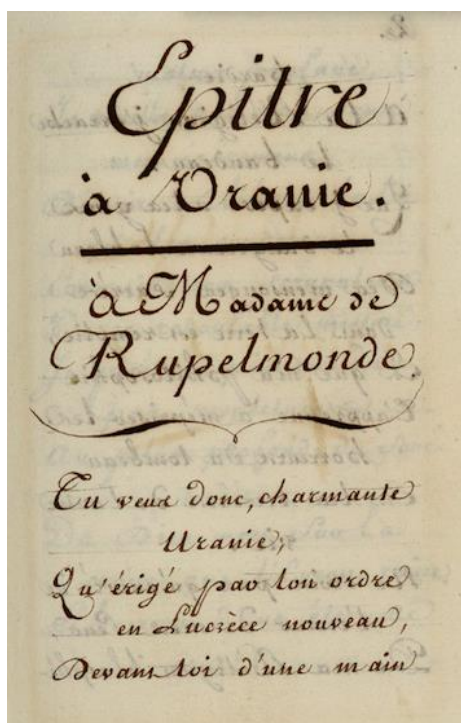 Epitre
à Vranie.
à Madame de
Rupelmonde.
Tu veux donc, charmante
Uranie,
Qu'érigé par ton ordre
en Lucrèce nouveau,
Devant toi d'une main